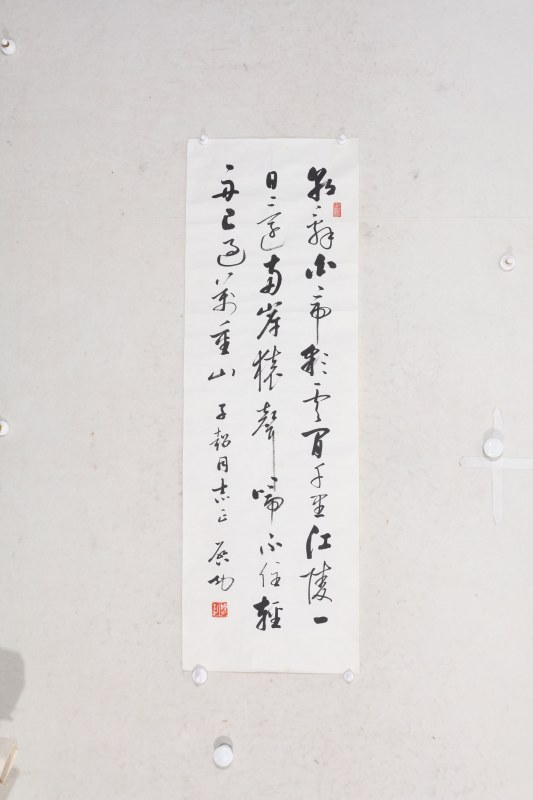 朝辭白帝彩雲間千里江陵一
日還兩岸猿聲啼不住輕
舟已過萬重山 子同志正 启功